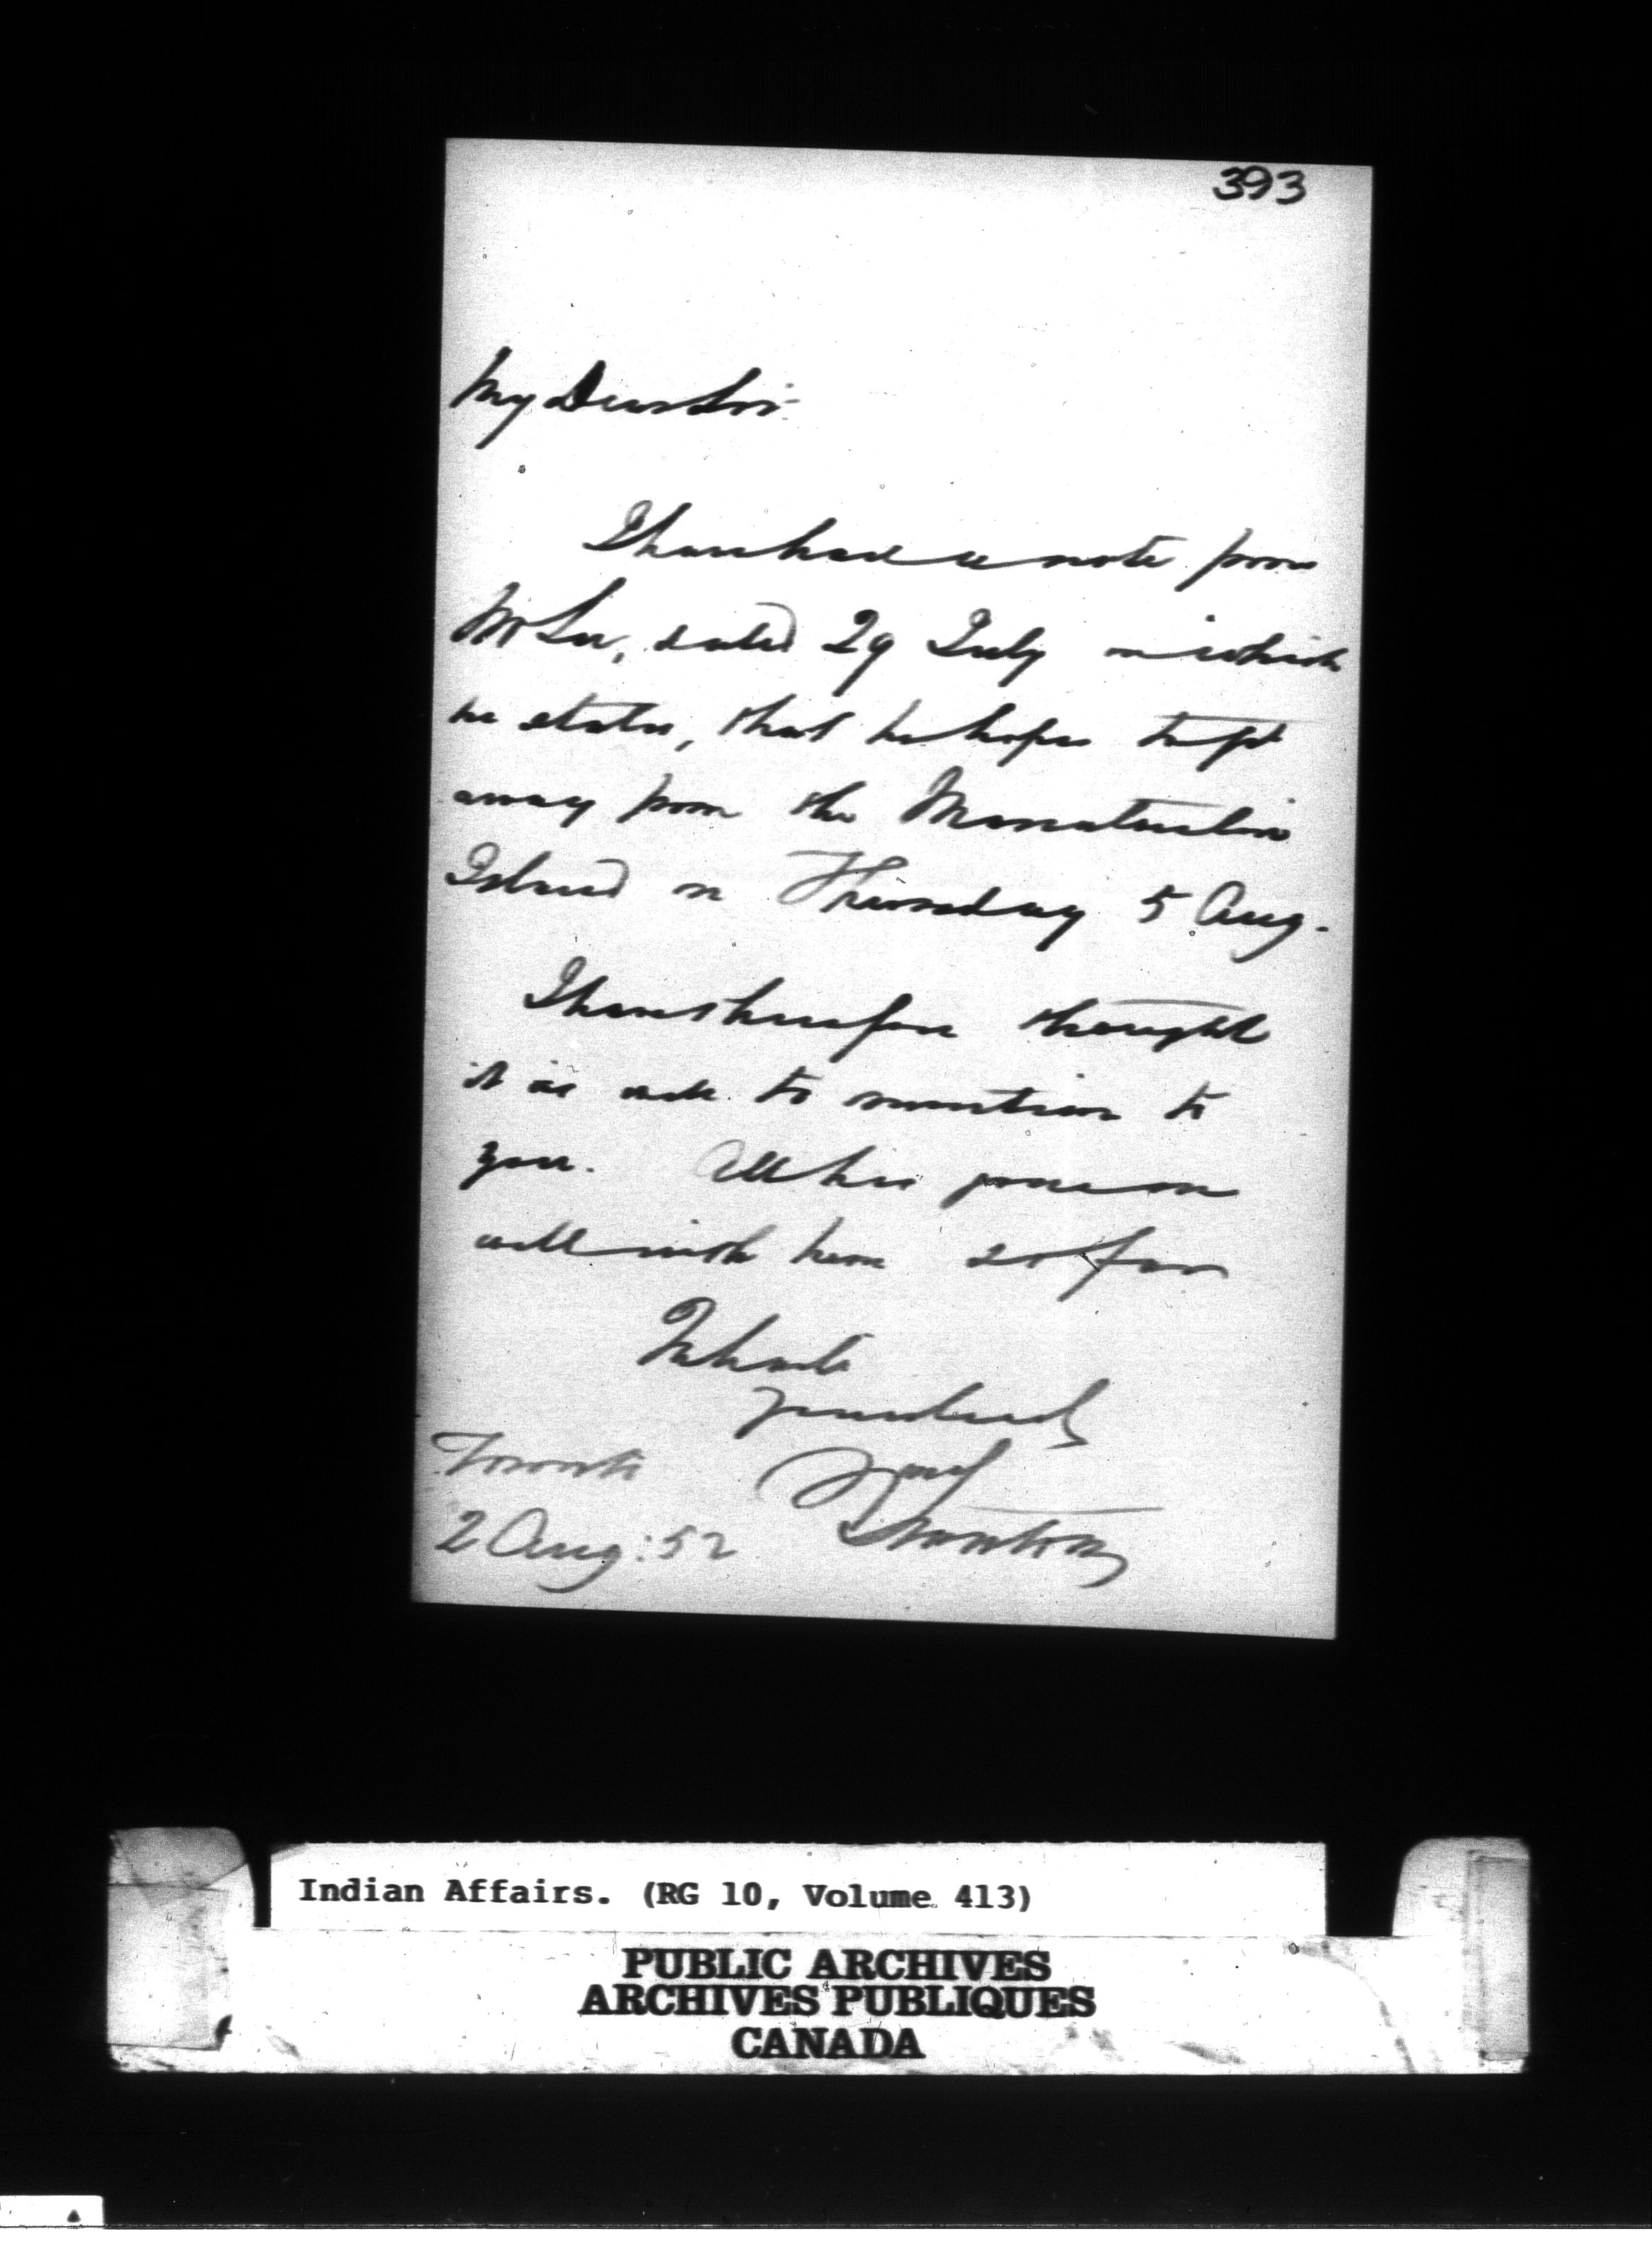 393
My Dear Sir
I have had a note from
Mr Lee, dated 29 July in which
he states, that he hopes to get
away from the Manatoulin
Island on Thursday 5 Aug.
I have therefore thought
it as well to mention to
you. All has gone on
well with him so far
In haste
Yours truly
Stanton
Toronto
2 Aug: 52
Indian Affairs. (RG 10, Volume 413)
PUBLIC ARCHIVES
ARCHIVES PUBLIQUES
CANADA